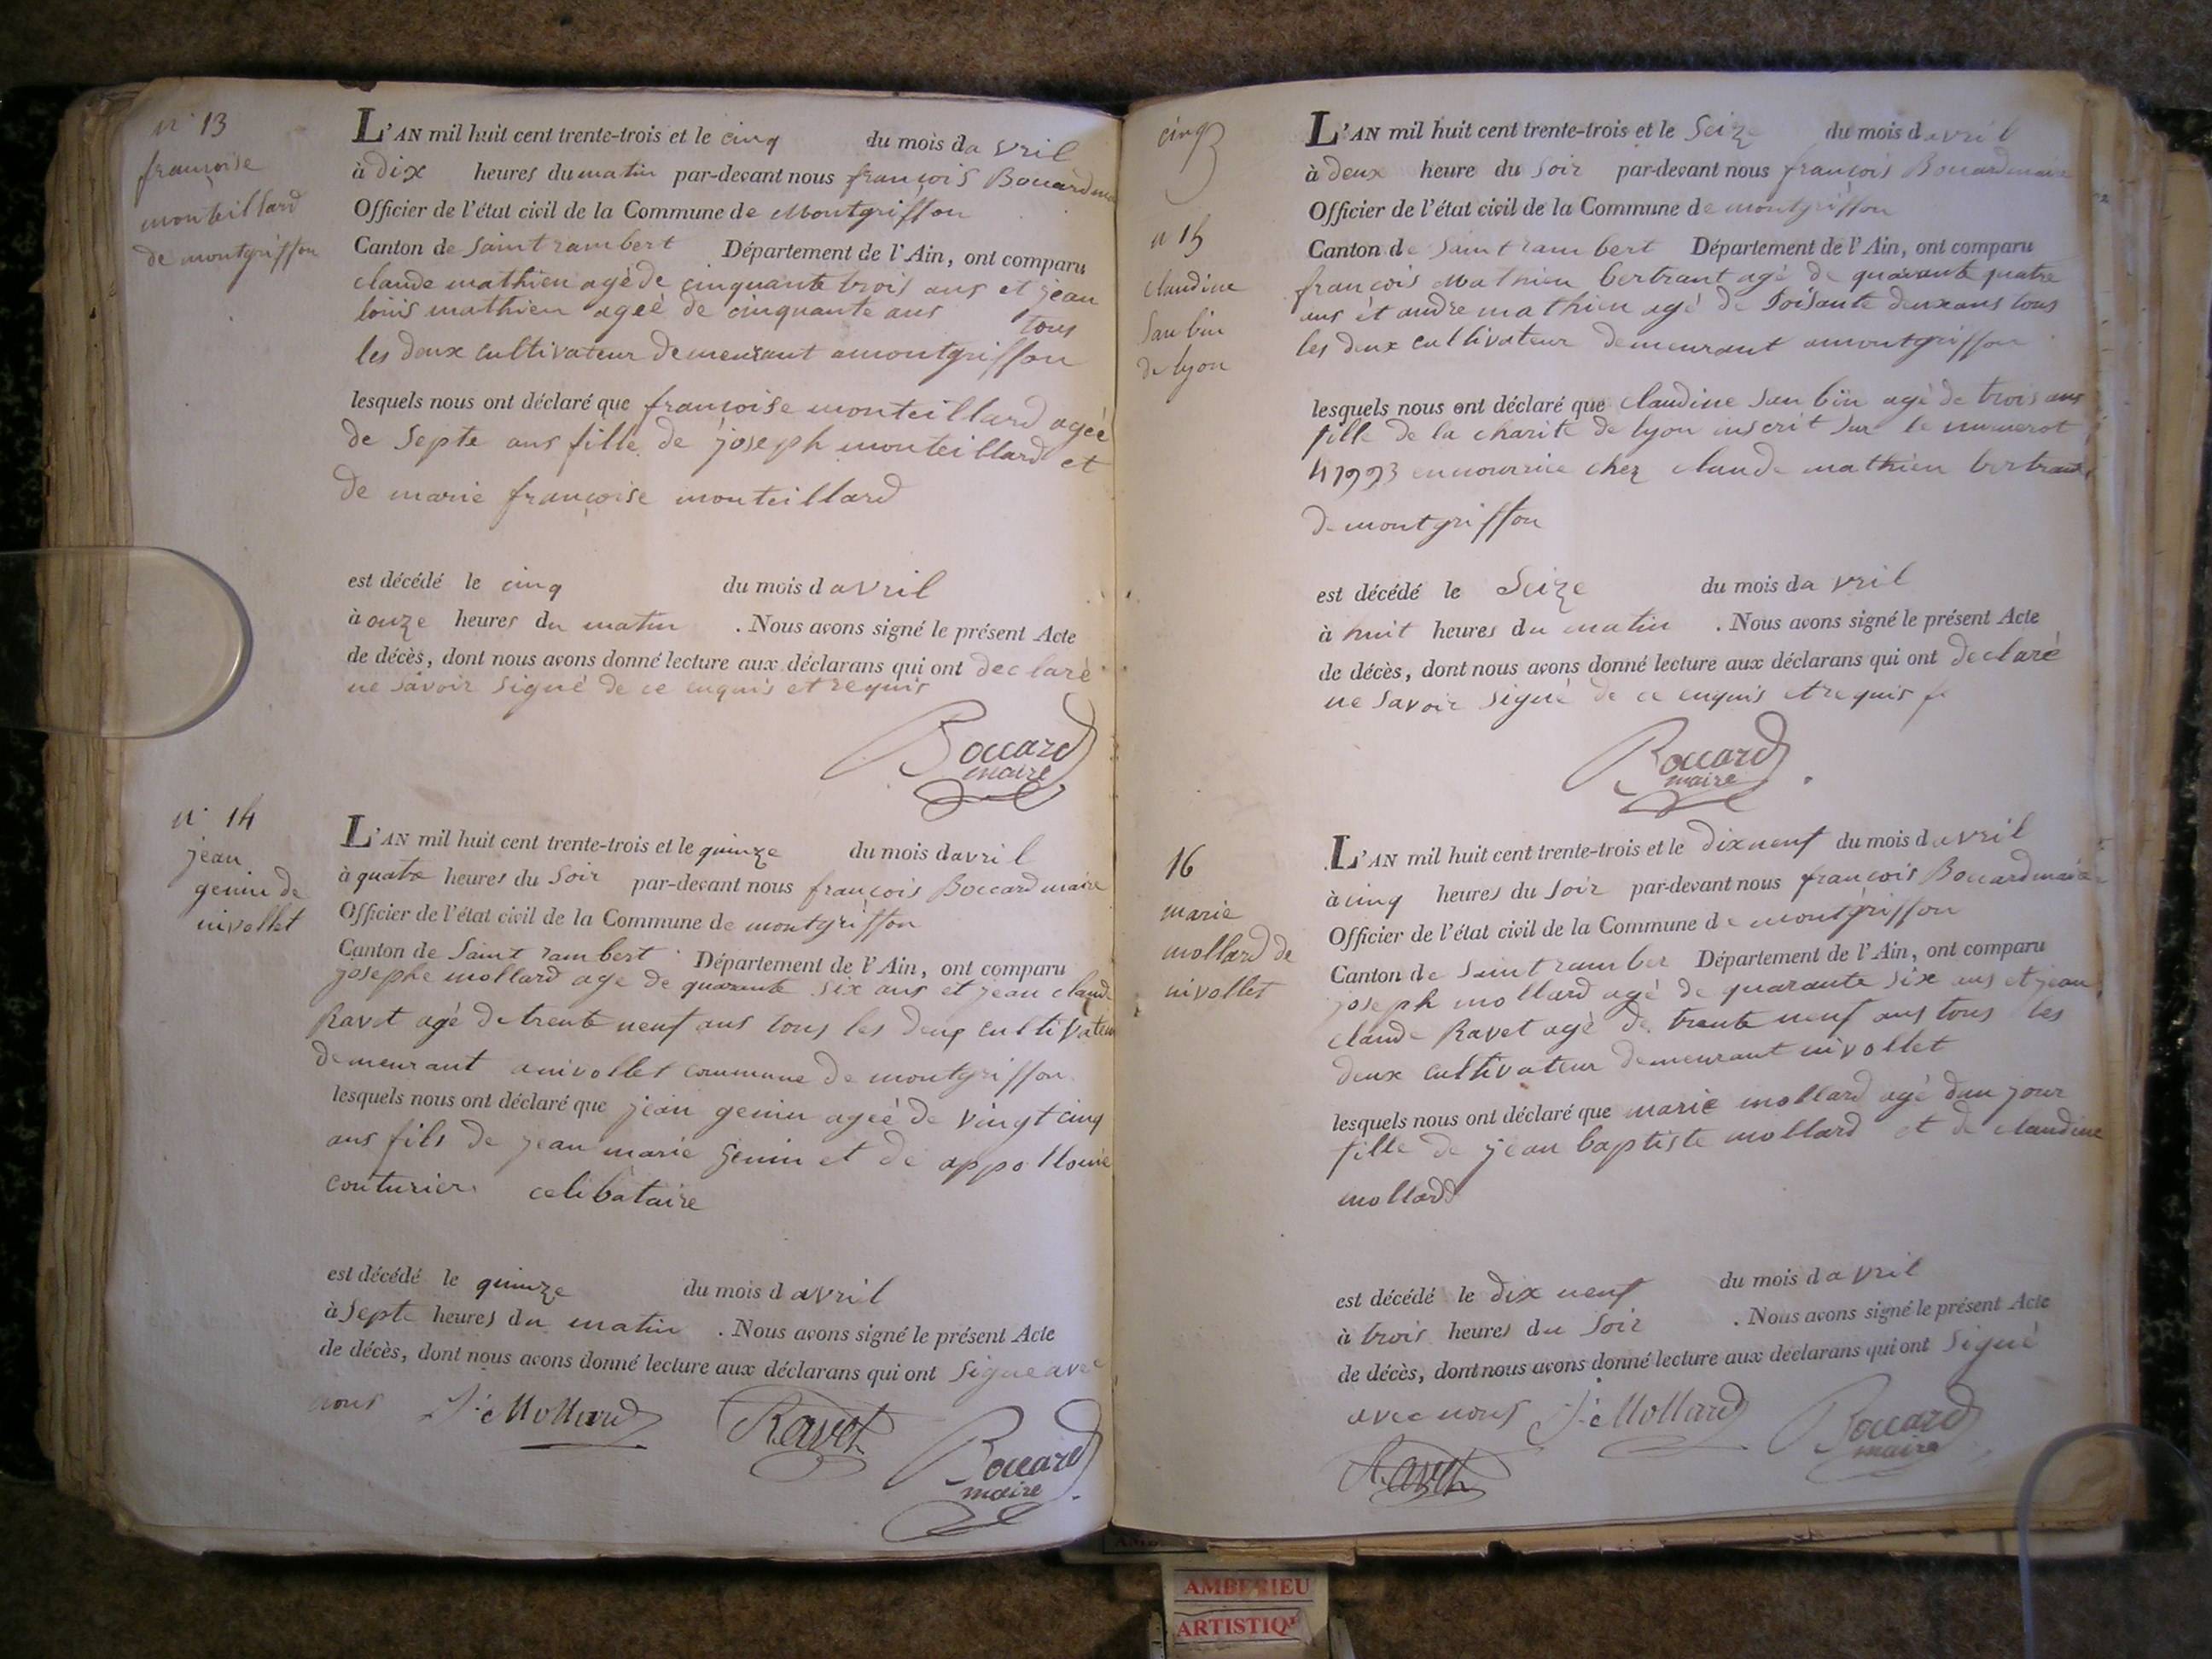 n° 13
françoise
monteillard
de montgriffon
L'AN mil huit cent trente-trois et le cinq du mois da vril
à dix heures du matin par-devant nous françois Boccard
Officier de l'état civil de la Commune de Montgriffon
Canton de Saint rambert Département de l'Ain, ont comparu
claude mathieu agé de cinquante trois ans et jean
louis mathieu ageé de cinquante ans tous
les deux cultivateur demeurant amontgriffon
lesquels nous ont déclaré que françoise monteillard ageé
de septe ans fille de joseph monteillard et
de marie françoise monteillard
est décédé le cinq du mois d avril
à onze heures du matin . Nous avons signé le présent Acte
de décès, dont nous avons donné lecture aux déclarans qui ont declaré
ne savoir signé de ce enquis et requis
Boccard
maire
n° 14
jean
genin de
nivollet
L'AN mil huit cent trente-trois et le quinze du mois davril
à quatre heures du soir par-devant nous françois Boccard maire
Officier de l'état civil de la Commune de montgriffon
Canton de Saint rambert Département de l'Ain, ont comparu
josephe mollard age de quarante six ans et jean claude
Ravet agé de trente neuf ans tous les deux cultivateur
demeurant anivollet commune de montgriffon
lesquels nous ont déclaré que jean genin ageé de vingt cinq
ans fils de jean marie genin et de appollonie
couturier celibataire
est décédé le quinze du mois d avril
à septe heures du matin . Nous avons signé le présent Acte
de décès, dont nous avons donné lecture aux déclarans qui ont signe avec
nous J.é Mollard Ravet
Boccard
maire
cinq
n 15
claudine
saubin
de lyon
L'AN mil huit cent trente-trois et le Seize du mois davril
à deux heure du soir par-devant nous françois Boccard maire
Officier de l'état civil de la Commune de montgriffon
Canton de Saint rambert Département de l'Ain, ont comparu
françois Mathieu bertrant agé de quarante quatre
ans et andre mathieu agé de soisante deux ans tous
les deux cultivateur demeurant amontgriffon
lesquels nous ont déclaré que claudine saubin agé de trois ans
fille de la charité de lyon inscrit sur le numerot
41993 en nourrice chez claude mathieu bertrant
de montgriffon
est décédé le Seize du mois da vril
à huit heures du matin . Nous avons signé le présent Acte
de décès, dont nous avons donné lecture aux déclarans qui ont declaré
ne savoir signé de ce enquis et requis
Boccard
maire
16
marie
mollard de
nivollet
L'AN mil huit cent trente-trois et le dixneuf du mois d avril
à cinq heures du soir par-devant nous françois Boccard maire
Officier de l'état civil de la Commune de montgriffon
Canton de Saint ramber Département de l'Ain, ont comparu
joseph mollard agé de quarante six ans et jean
claude Ravet agé de trente neuf ans tous les
deux cultivateur demeurant nivollet
lesquels nous ont déclaré que marie mollard agé dun jour
fille de jean baptiste mollard et de claudine
mollard
est décédé le dix neuf du mois d avril
à trois heures du soir . Nous avons signé le présent Acte
de décès, dont nous avons donné lecture aux déclarans qui ont signé
avec nous J.é Mollard Boccard
maire
Ravet
AMBERIEU
ARTISTIQ